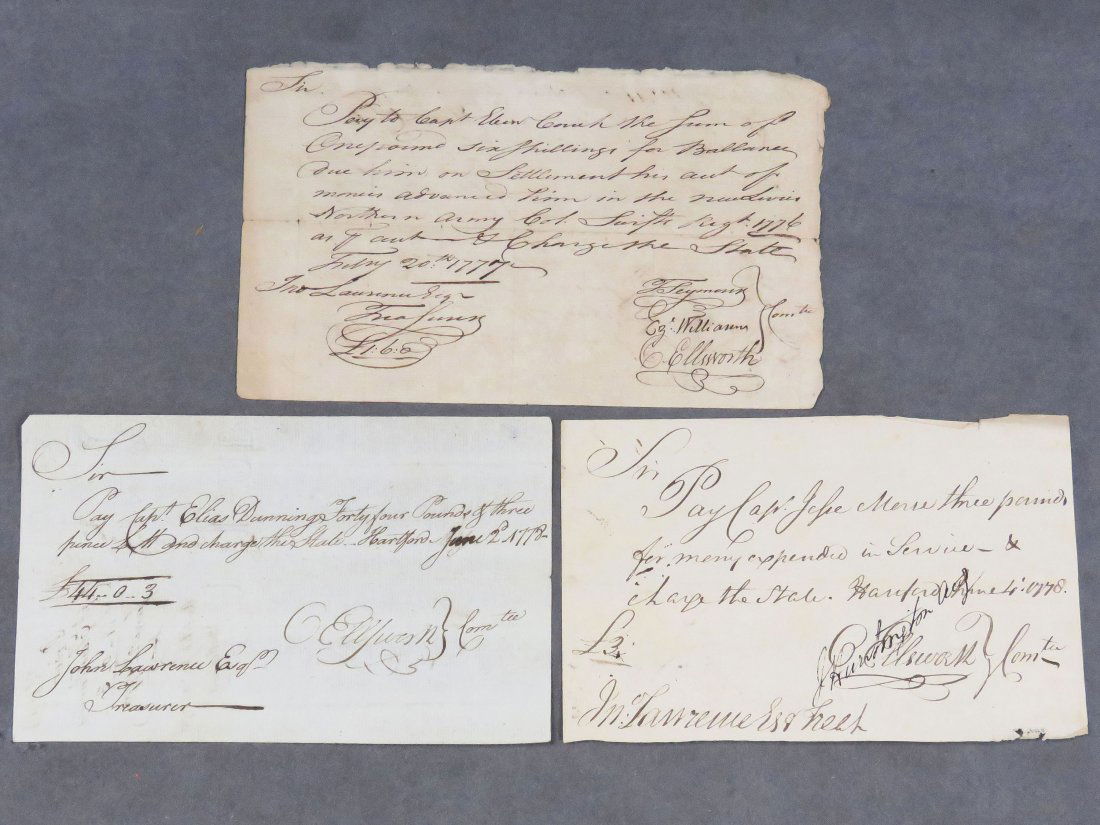 Sir.
Pay to Capt Eben Couch the Sum of
One pound six shillings for Ballance
due him on Settlement his acct of
monies advanced him in the
Northern Army Col. Swifts Regt. 1776
as acct & Charge the State
Feby 20th. 1777
Jno Lawrence Esqr
Treasurer
£1:6:0
T Seymour
Ezl. Williams
O. Ellsworth
Comtee
Sir
Pay Capt. Elias Dunning Forty four Pounds & three
pence LM and charge the State - Hartford June 2d. 1778-
£44-0-3
O Ellsworth Comtee
John Lawrence Esqr.
Treasurer
Sir
Pay Capt. Jesse Morse three pounds
for money expended in Service - &
charge the State. Harford June 4t. 1778.
£3.
Huntington
O Ellsworth Comtee
Jno. Lawrence Esqr